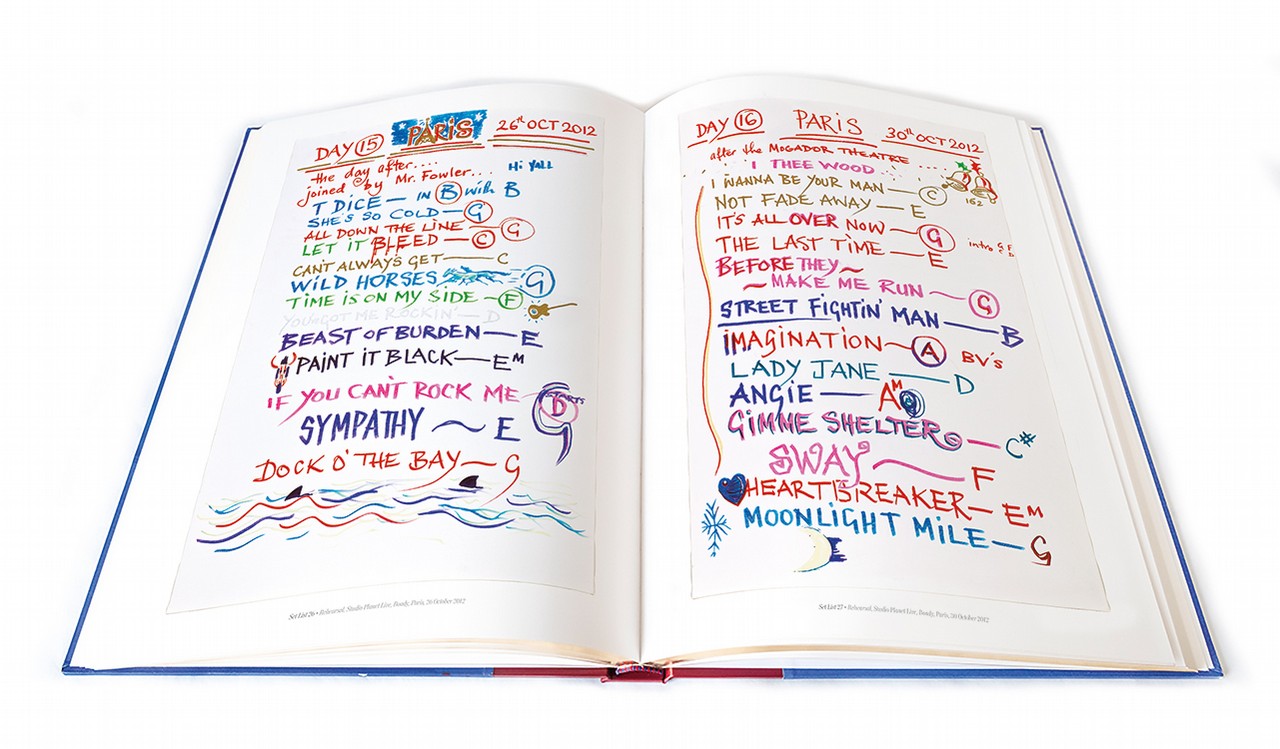 DAY 15 PARIS 26th OCT 2012
the day after.... Hi YALL
joined by Mr. Fowler...
T DICE — IN B with B
SHE'S SO COLD — G
ALL DOWN THE LINE — G
LET IT BLEED — C
CAN'T ALWAYS GET — C
WILD HORSES G
TIME IS ON MY SIDE — F
YOU GOT ME ROCKIN' — D
BEAST OF BURDEN — E
PAINT IT BLACK — EM
IF YOU CAN'T ROCK ME STARTS D G
SYMPATHY ~ E
DOCK O' THE BAY — G
Set List 26 • Rehearsal, Studio Planet Live, Bondy, Paris, 26 October 2012
DAY 16 PARIS 30th OCT 2012
after the MOGADOR THEATRE ....
I THEE WOOD
I WANNA BE YOUR MAN — C
162
NOT FADE AWAY — E
IT'S ALL OVER NOW — G
THE LAST TIME — E
BEFORE THEY ~
~ MAKE ME RUN — G
STREET FIGHTIN' MAN — B
IMAGINATION — A BV'S
LADY JANE — D
ANGIE — AM
GIMME SHELTER — C#
SWAY — F
HEARTBREAKER — EM
MOONLIGHT MILE — G
Set List 27 • Rehearsal, Studio Planet Live, Bondy, Paris, 30 October 2012